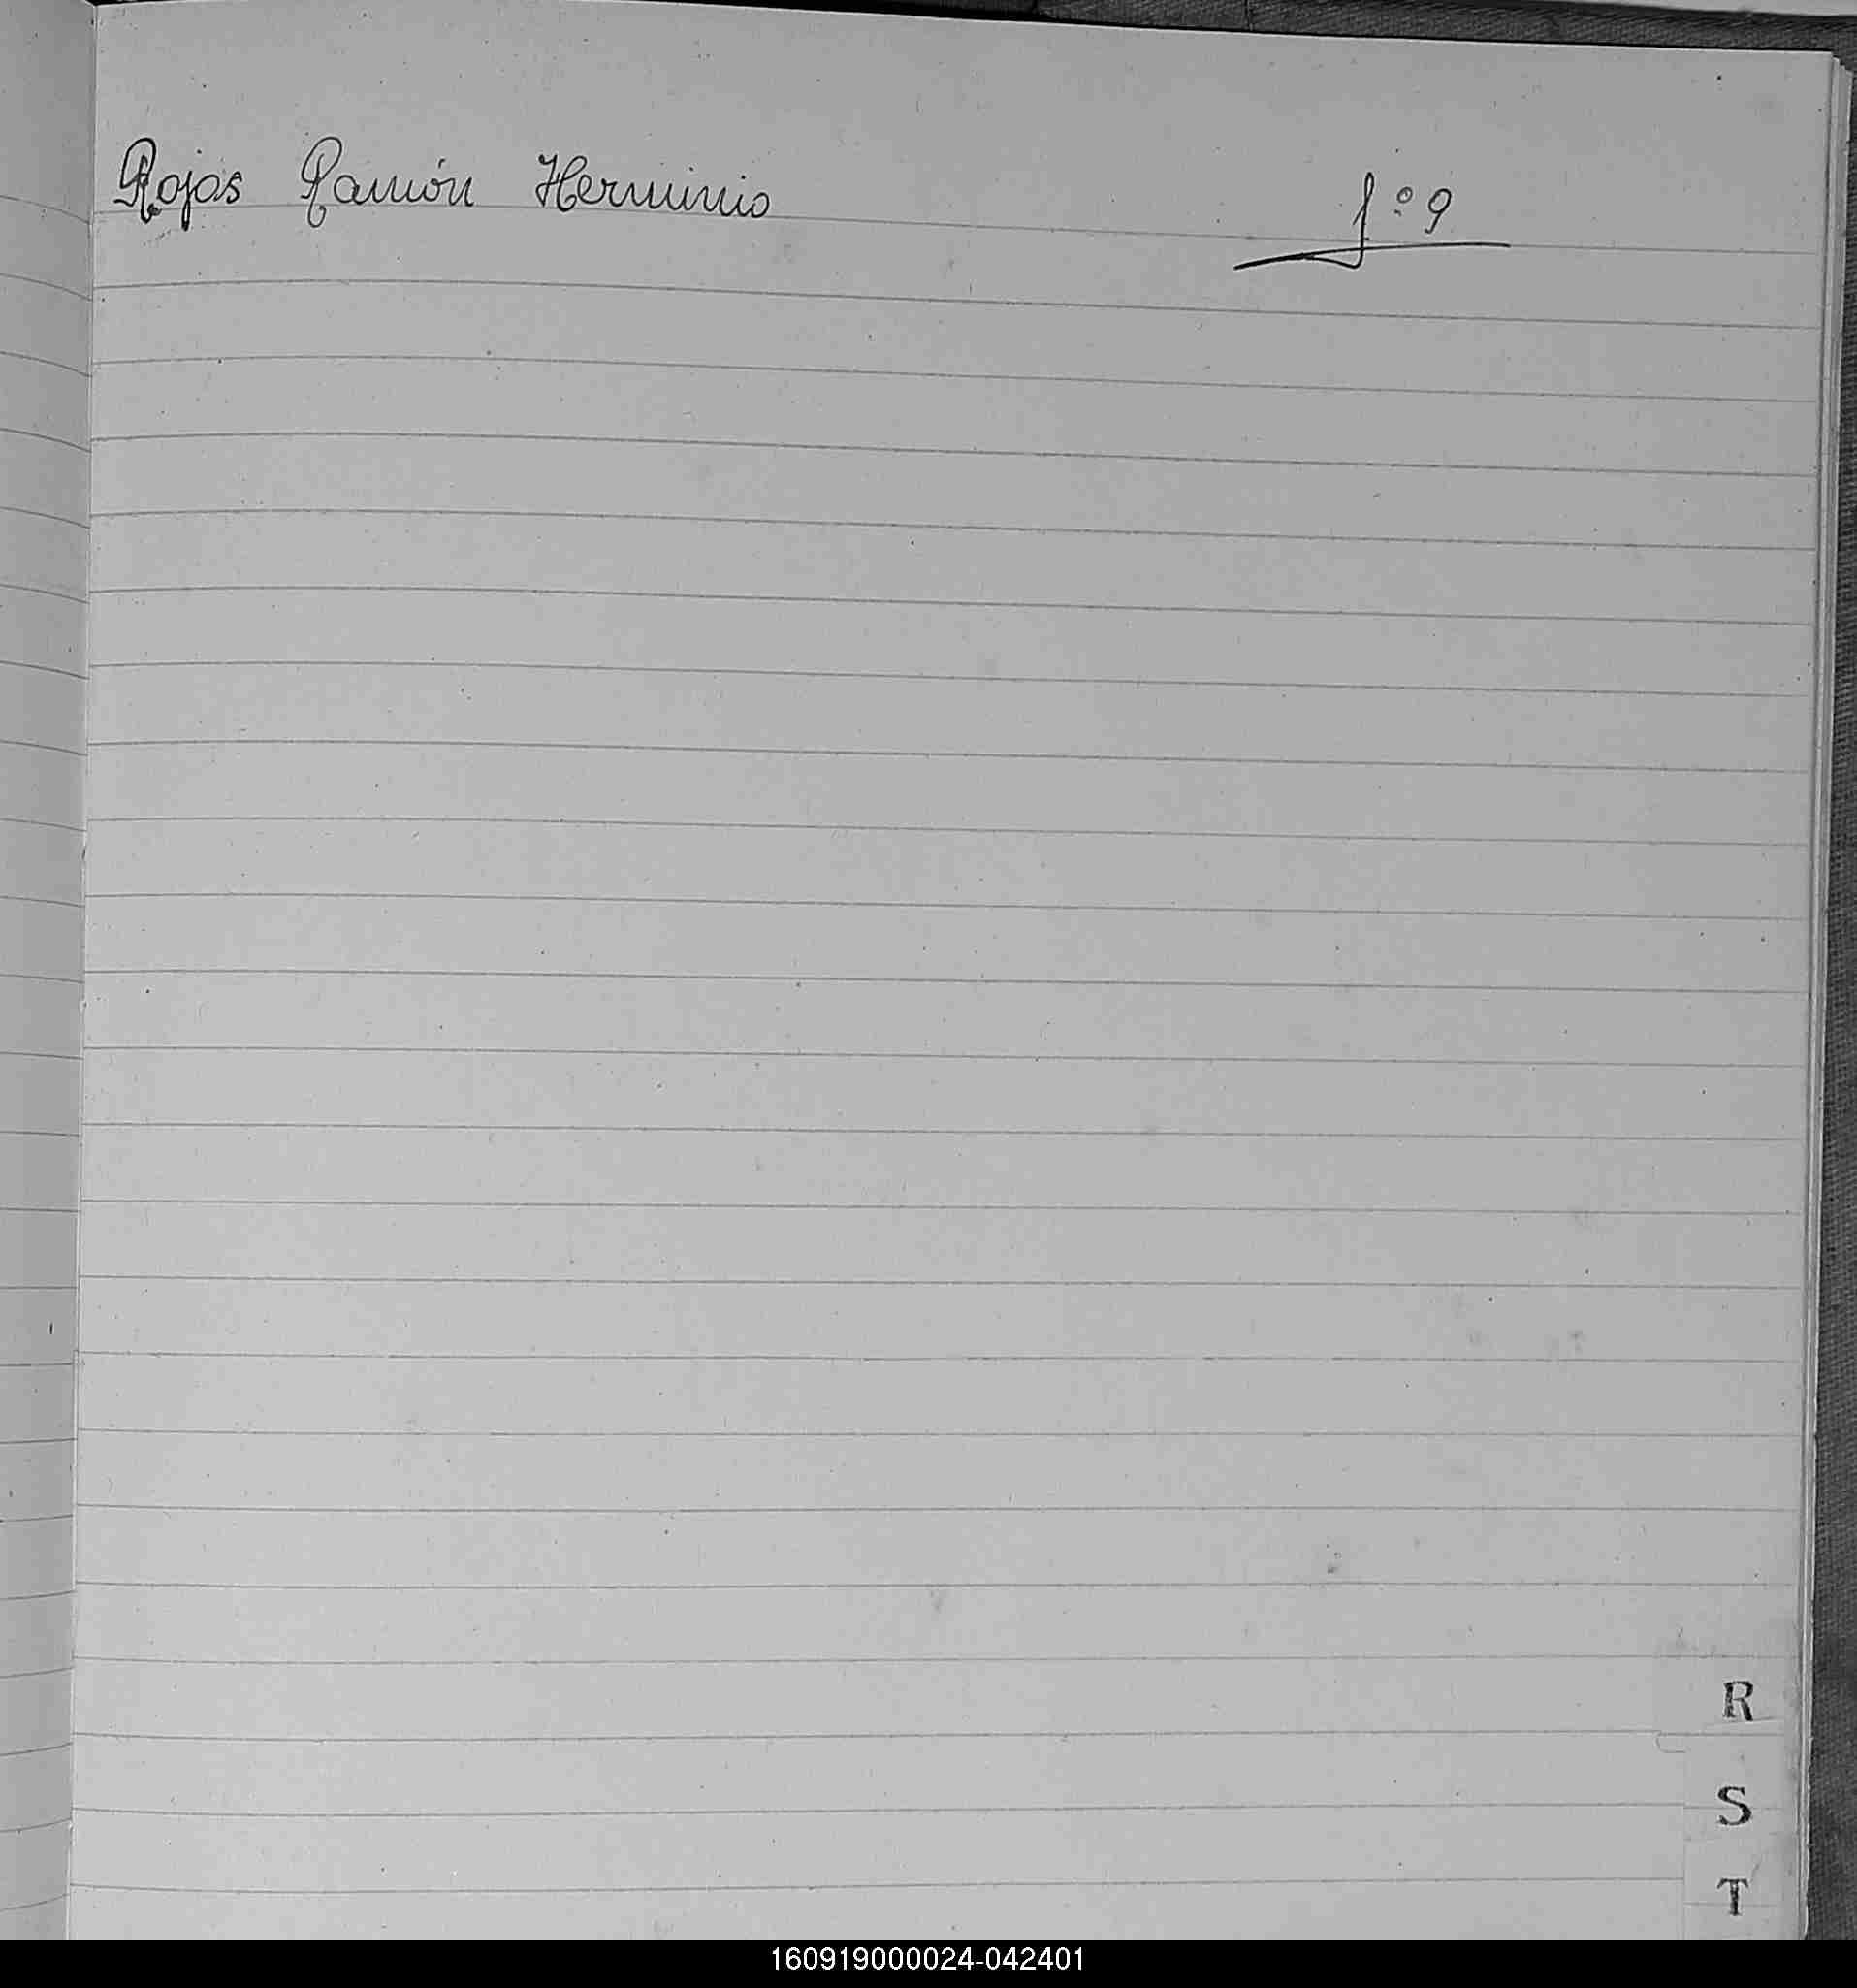 Rojas Ramón Herminio fº 9
R
S
T
160919000024-042401